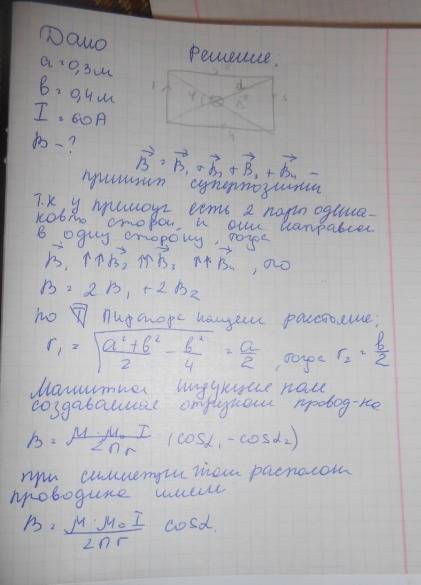 Дано
Решение:
a = 0,3 м
b = 0,4 м
I = 60 А
B - ?
B⃗ = B⃗₁ + B⃗₂ + B⃗₃ + B⃗₄ -
принцип суперпозиции
Т.к у прямоуг есть 2 пары одина-
ковых сторон, и они направлен
в одну сторону, тогда
B⃗₁ ↑↑ B⃗₂ ↑↑ B⃗₃ ↑↑ B⃗₄, то
B = 2 B₁ + 2 B₂
по Т Пифагора найдем расстояние:
r₁ = √(a² + b²/2 - b²/4) = a/2, тогда r₂ = b/2
Магнитное поле
создаваемое отрезком провод-ка
B = M M₀ I/2πr (cosα₁ - cosα₂)
при симметричном располож
проводника имеем
B = M · M₀ I/2πr cosα.